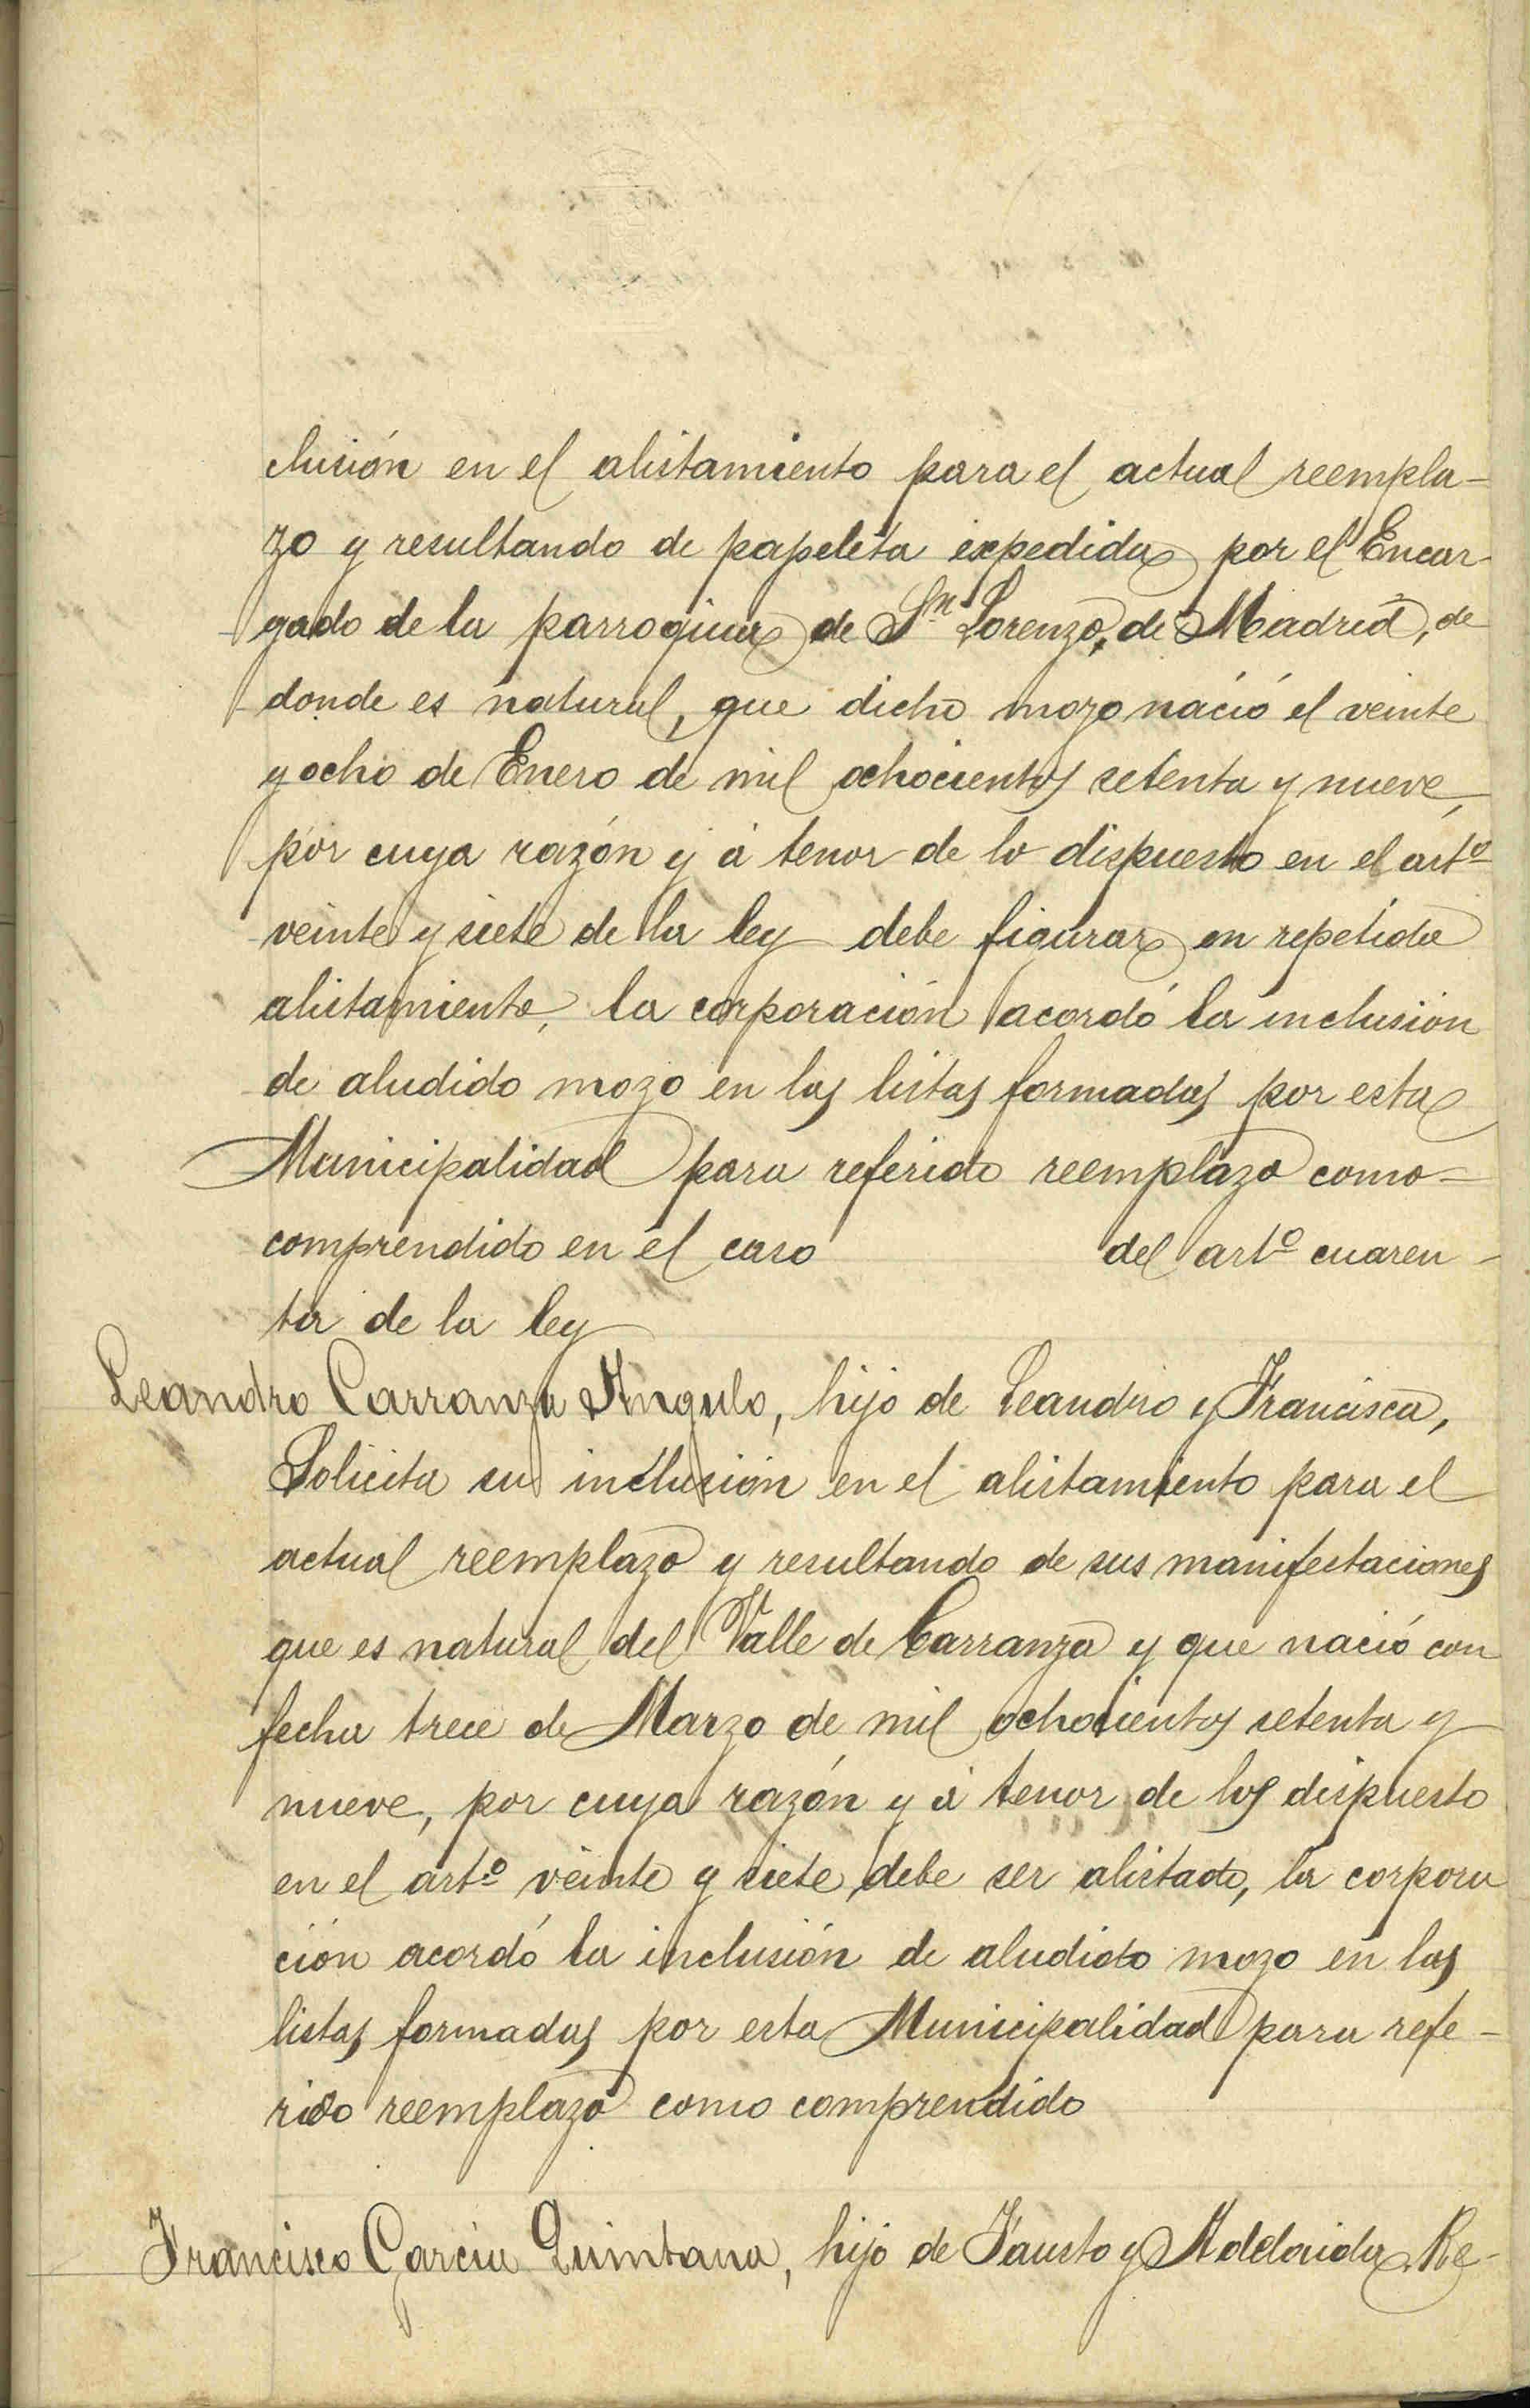 clusión en el alistamiento para el actual reempla-
zo y resultando de papeleta expedida por el Encar-
gado de la parroquia de Sn. Lorenzo, de Madrid, de
donde es natural, que dicho mozo nació el veinte
y ocho de Enero de mil ochocientos setenta y nueve,
por cuya razón y á tenor de lo dispuesto en el artº
veinte y siete de la ley debe figurar en repetido
alistamiento, la corporación acordó la inclusión
de aludido mozo en las listas formadas por esta
Municipalidad para referido reemplazo como-
comprendido en el caso del artº cuaren-
ta de la ley
Leandro Carranza Angulo, hijo de Leandro y Francisca,
Solicita su inclusión en el alistamiento para el
actual reemplazo y resultando de sus manifestaciones
que es natural del Valle de Carranza y que nació con
fecha trece de Marzo de mil ochocientos setenta y
nueve, por cuya razón y á tenor de los dispuesto
en el artº veinte y siete debe ser alistado, la corpora
ción acordó la inclusión de aludido mozo en las
listas formadas por esta Municipalidad para refe-
rido reemplazo como comprendido
Francisco García Quintana, hijo de Fausto y Adelaida. Re-